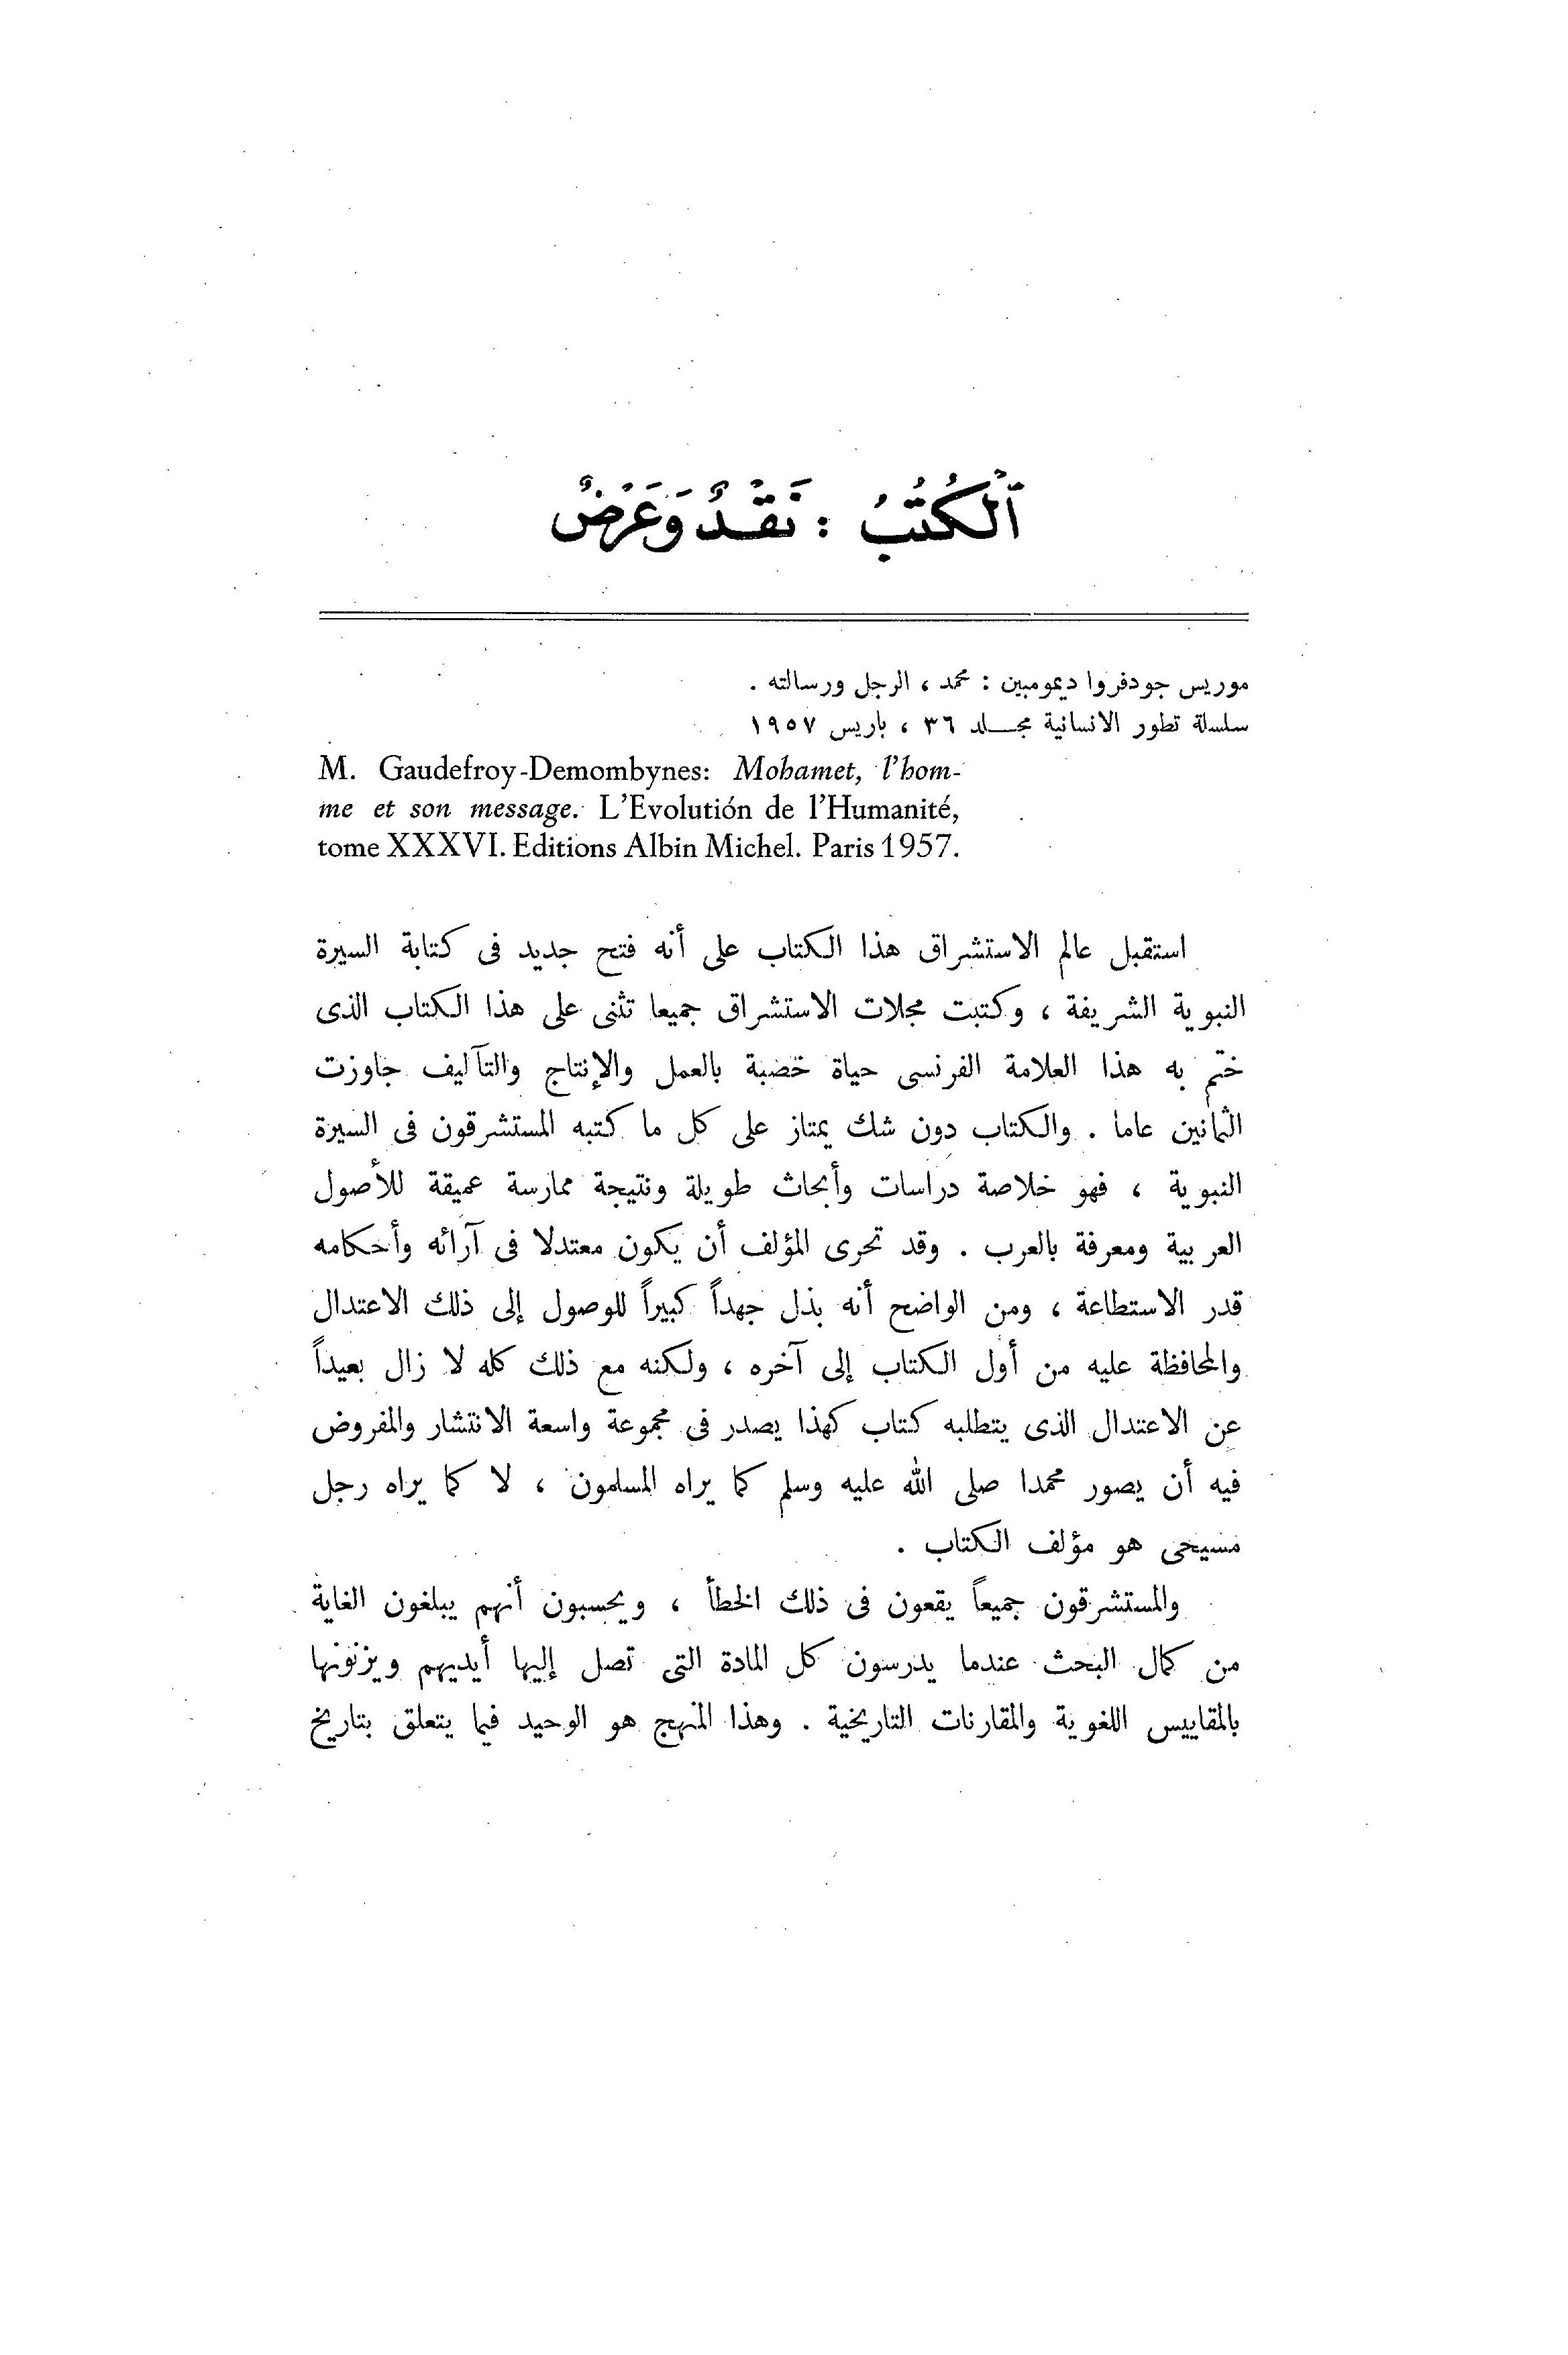 ٱلْكُتُبُ : نَقْدٌ وَعَرْضٌ
موريس جودفروا ديمومبين : محمد ، الرجل ورسالته .
سلسلة تطور الانسانية مجلد ٣٦ ، باريس ١٩٥٧
M. Gaudefroy-Demombynes: Mohamet, l'hom-
me et son message. L'Evolutión de l'Humanité,
tome XXXVI. Editions Albin Michel. Paris 1957.
استقبل عالم الاستشراق هذا الكتاب على أنه فتح جديد فى كتابة السيرة
النبوية الشريفة ، وكتبت مجلات الاستشراق جميعا تثنى على هذا الكتاب الذى
ختم به هذا العلامة الفرنسى حياة خضبة بالعمل والإنتاج والتآليف جاوزت
الثمانين عاما . والكتاب دون شك يمتاز على كل ما كتبه المستشرقون فى السيرة
النبوية ، فهو خلاصة دراسات وأبحاث طويلة ونتيجة ممارسة عميقة للأصول
العربية ومعرفة بالعرب . وقد تحرى المؤلف أن يكون معتدلا فى آرائه وأحكامه
قدر الاستطاعة ، ومن الواضح أنه بذل جهداً كبيراً للوصول إلى ذلك الاعتدال
والمحافظة عليه من أول الكتاب إلى آخره ، ولكنه مع ذلك كله لا زال بعيداً
عن الاعتدال الذى يتطلبه كتاب كهذا يصدر فى مجموعة واسعة الانتشار والمفروض
فيه أن يصور محمدا صلى الله عليه وسلم كما يراه المسلمون ، لا كما يراه رجل
مسيحى هو مؤلف الكتاب .
والمستشرقون جميعاً يقعون فى ذلك الخطأ ، ويحسبون أنهم يبلغون الغاية
من كمال البحث عندما يدرسون كل المادة التى تصل إليها أيديهم ويزنونها
بالمقاييس اللغوية والمقارنات التاريخية . وهذا المنهج هو الوحيد فيما يتعلق بتاريخ